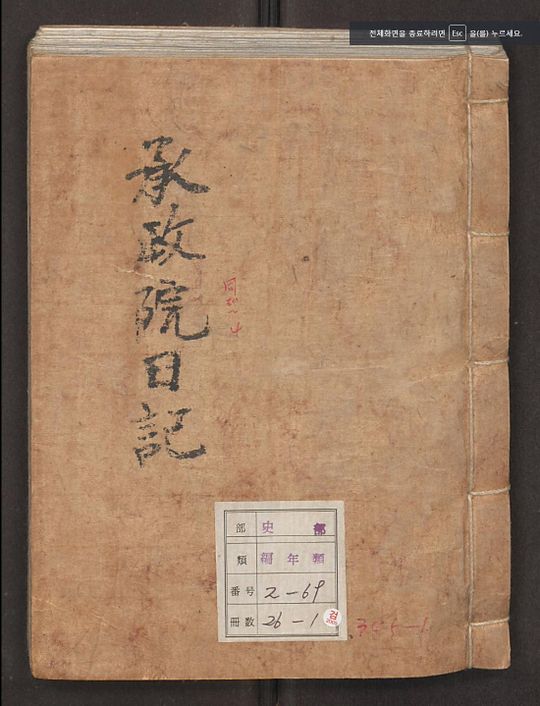 전체화면을 종료하려면 Esc 을(를) 누르세요.
承政院日記
部 史部
類 編年類
番号 2-69
冊数 26-1